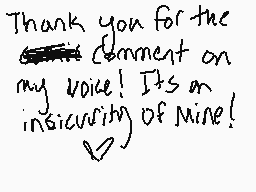 Thank you for the
comment on
my voice! Its an
insicurity of Mine!